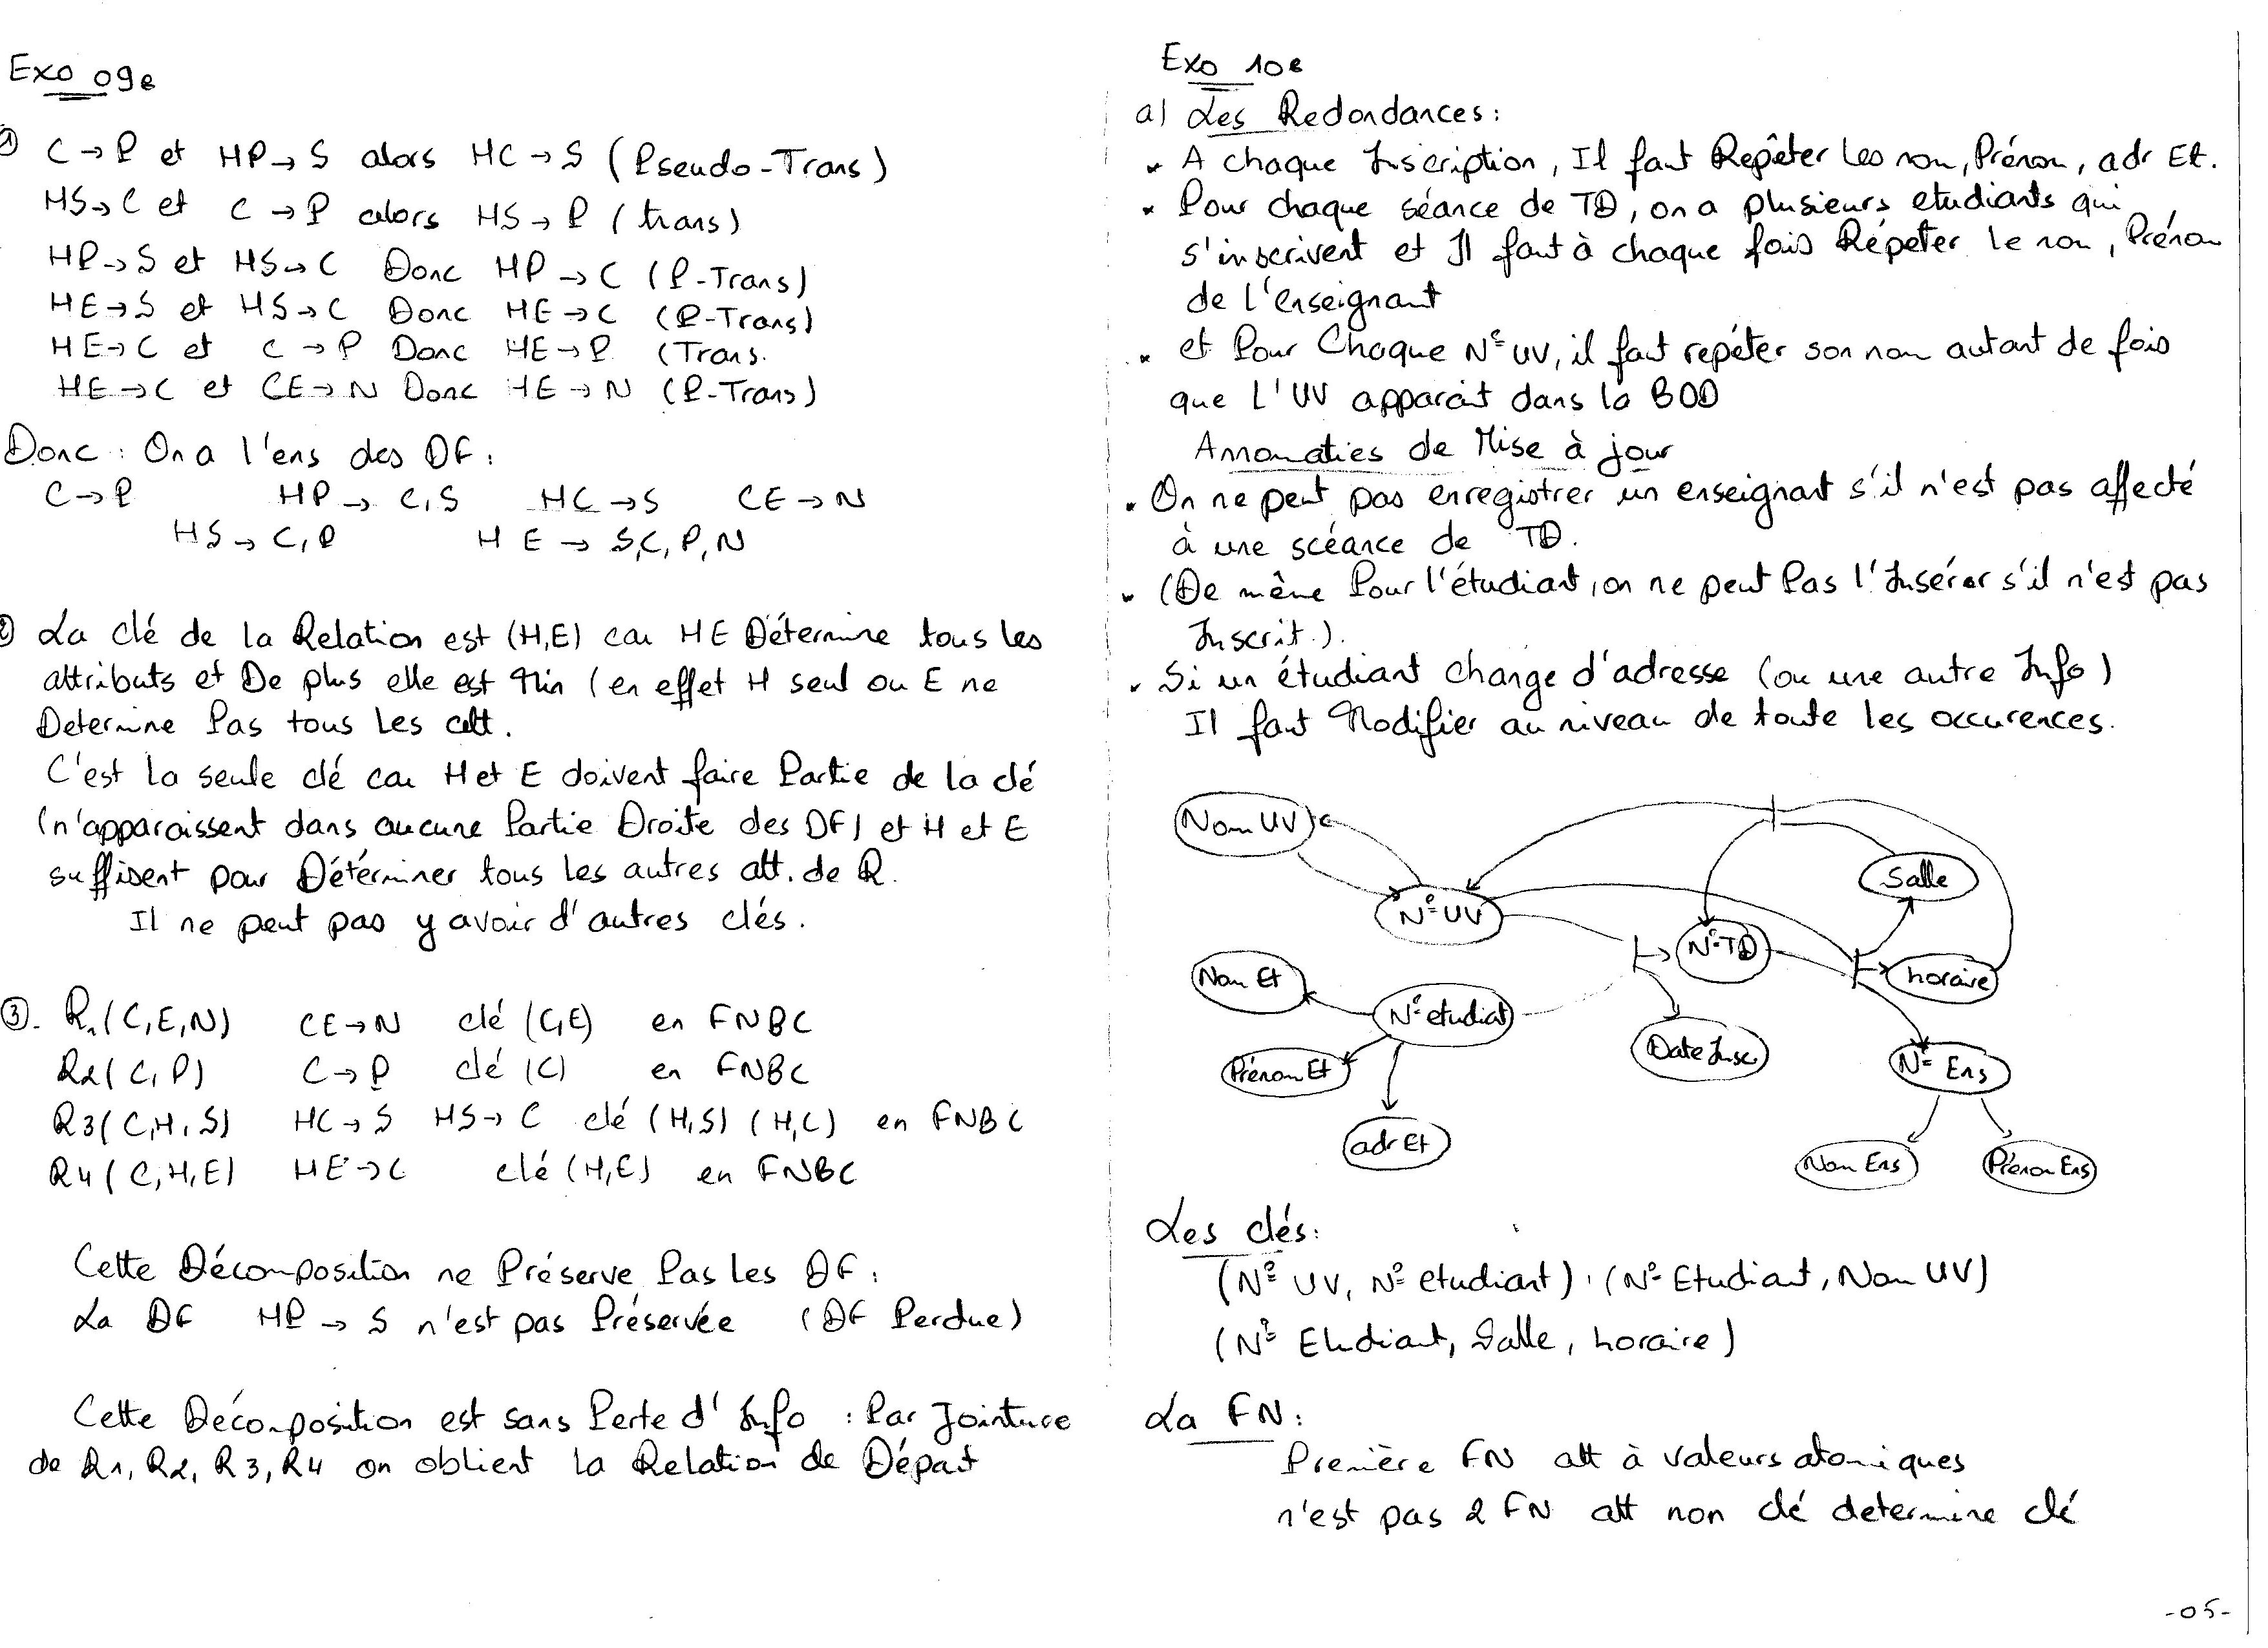 Exo 09:
① C → P et HP → S alors HC → S (Pseudo-Trans)
HS → C et C → P alors HS → P (trans)
HP → S et HS → C Donc HP → C (P-Trans)
HE → S et HS → C Donc HE → C (P-Trans)
HE → C et C → P Donc HE → P (Trans.
HE → C et CE → N Donc HE → N (P-Trans)
Donc : On a l'ens des DF :
C → P HP → C,S HC → S CE → N
HS → C,P HE → S,C,P,N
② La clé de la Relation est (H,E) car HE Détermine tous les
attributs et De plus elle est Min (en effet H seul ou E ne
Determine Pas tous Les att.
C'est la seule clé car H et E doivent faire Partie de la clé
(n'apparaissent dans aucune Partie Droite des DF) et H et E
suffisent pour Détérminer tous les autres att. de R.
Il ne peut pas y avoir d'autres clés.
③. R1(C,E,N) CE → N clé (C,E) en FNBC
R2(C,P) C → P clé (C) en FNBC
R3(C,H,S) HC → S HS → C clé (H,S) (H,C) en FNBC
R4(C,H,E) HE → C clé (H,E) en FNBC
Cette Décomposition ne Préserve Pas Les DF :
La DF HP → S n'est pas Préservée (DF Perdue)
Cette Décomposition est sans Perte d'Info : Par Jointure
de R1, R2, R3, R4 on obtient la Relation de Départ
Exo 10:
a) Les Redondances :
* A chaque Inscription, Il faut Repêter les nom, Prénom, adr Et.
* Pour chaque séance de TD, on a plusieurs etudiants qui
s'inscrivent et Il faut à chaque fois Répeter le nom, Prénom
de l'enseignant
* et Pour Chaque N° UV, il faut repéter son nom autant de fois
que L'UV apparait dans la BDD
Anomaties de Mise à jour
• On ne peut pas enregistrer un enseignant s'il n'est pas affecté
à une scéance de TD.
• (De même Pour l'étudiant, on ne peut Pas l'Insérer s'il n'est pas
Inscrit.).
• Si un étudiant change d'adresse (ou une autre Info)
Il faut Modifier au niveau de toute les occurences.
Nom UV
Salle
N° UV
N° TD
horaire
Nom Et
N° etudiat
Date Insc
Prénom Et
N° Ens
adr Et
Nom Ens
Prénom Ens
Les clés :
(N° UV, N° etudiant), (N° Etudiant, Nom UV)
(N° Etudiant, Salle, horaire)
La FN :
Première FN att à valeurs atomiques
n'est pas 2 FN att non clé determine clé
-05-